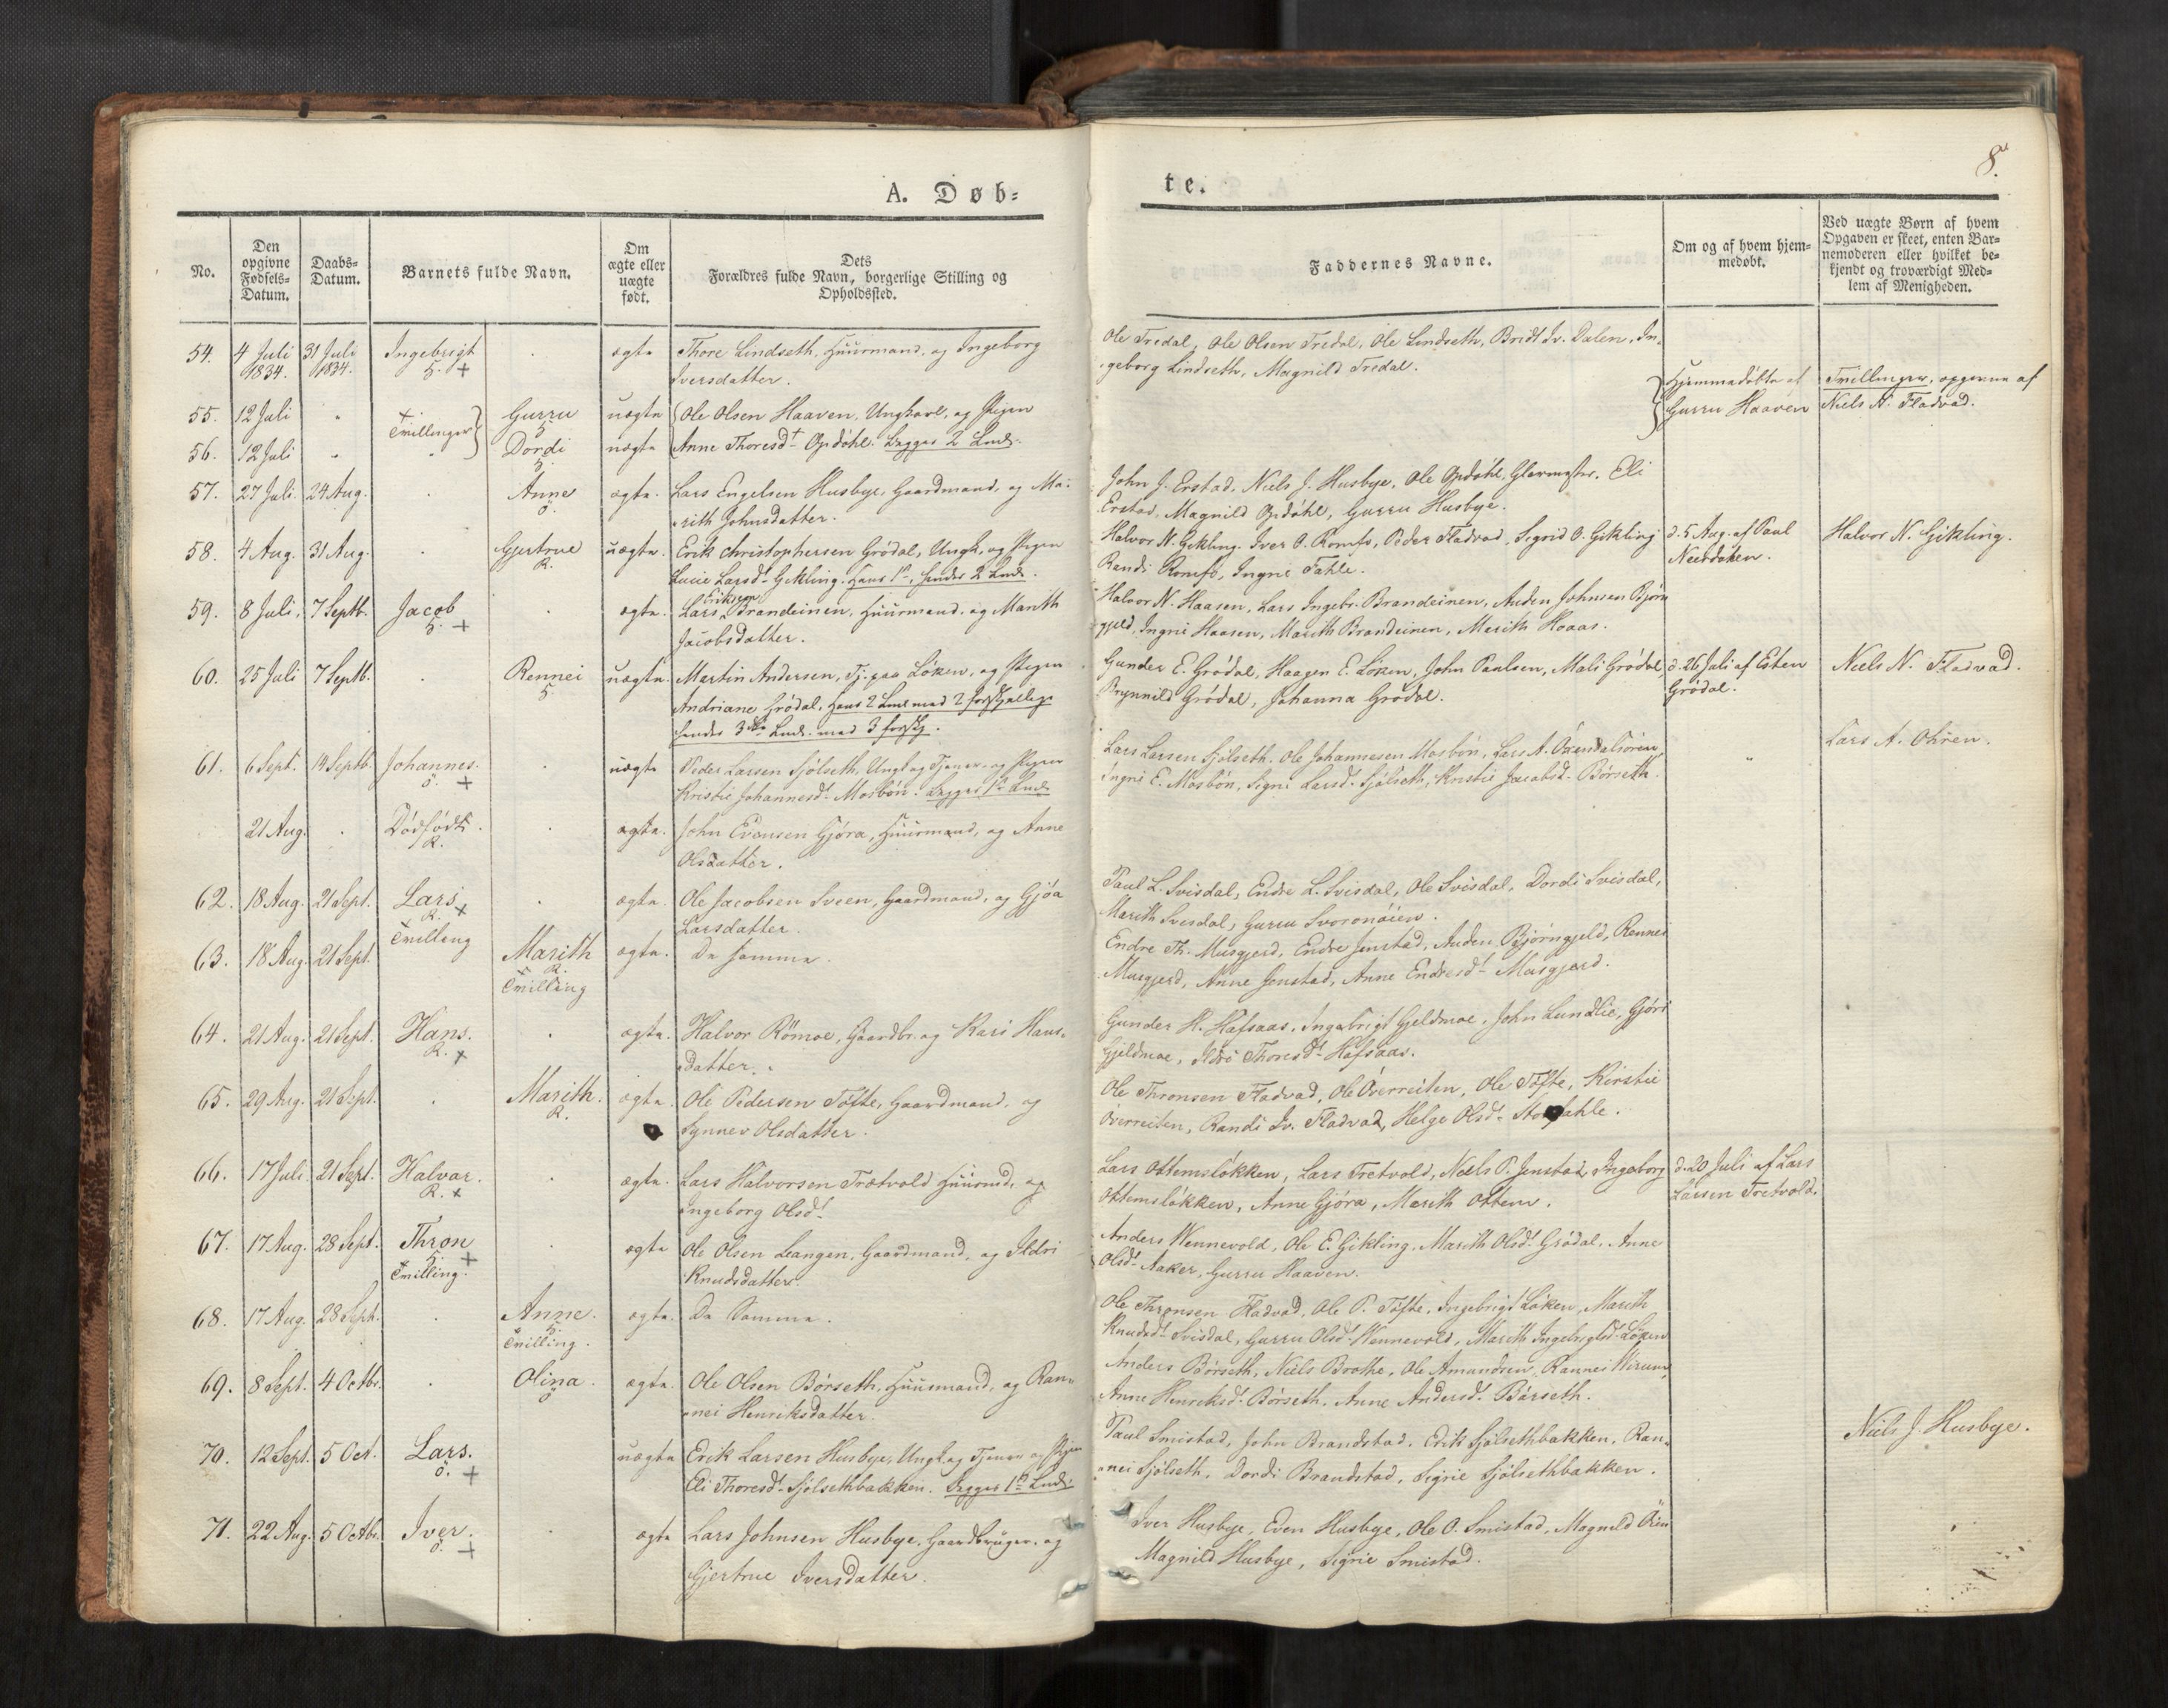 8.
A. Døb=
te.
No.
Den
opgivne
Fødsels=
Datum.
Daabs=
Datum.
Barnets fulde Navn.
Om
ægte eller
uægte
født.
Dets
Forældres fulde Navn, borgerlige Stilling og
Opholdssted.
Faddernes Navne.
Om og af hvem hjem=
medøbt.
Ved uægte Børn af hvem
Opgaven er skeet, enten Bar=
nemoderen eller hvilket be=
kjendt og troværdigt Med=
lem af Menigheden.
54. 4 Juli 31 Juli Ingebrigt ægte Thore Lindseth, Huusmand, og Ingeborg
1834. 1834. Iversdatter.
Ole Tredal, Ole Olsen Tredal, Ole Lindseth, Bridt Iv. Dalen, In-
geborg Lindseth, Magnild Tredal.
55. 12 Juli " Tvillinger Gurru uægte Ole Olsen Haaven, Ungkarl, og Pigen
56. 12 Juli " Dordi uægte Anne Thoresdt Opdøhl. Begges 2 Leie.
Hjemmedøbte af
Gurru Haaven
Tvillinger, opgivne af
Niels N. Fladvad.
57. 27 Juli. 24 Aug. Anne ægte. Lars Engelsen Husbye, Gaardmand, og Ma-
rith Johnsdatter.
John J. Erstad, Niels J. Husbye, Ole Opdøhl, Glarmester. Eli
Erstad, Magnild Opdøhl, Gurru Husbye.
58. 4 Aug. 31 Aug. Gjertrue uægte. Erik Christophersen Grødal, Ungk. og Pigen
R. Lucie Larsdt Gikling. Hans 1ste, hendes 2 Leie.
Halvor N. Gikling. Iver O. Romfo, Peder Fladvad, Sigrid O. Gikling
Randi Romfo, Ingri Fahle.
d. 5 Aug. af Paul
Halvor N. Gikling.
59. 8 Juli, 7 Septb. Jacob ægte. Lars Eriksen Brandeinen, Huusmand, og Marith
Jacobsdatter.
Halvor N. Haasen, Lars Ingebr. Brandeinen, Auden Johnsen Bjørn
gjeld, Ingri Haasen, Marith Brandeinen, Marith Hoaas.
60. 25 Juli 7 Septb. Rennei uægte. Martin Andersen, Tj. paa Løken, og Pigen
Andriane Grødal. Hans 2 Leie med 2 forskjellige
hendes 3die Leie. med 3 forskj.
Gunder E. Grødal, Haagen E. Løken, John Paulsen, Mali Grødal,
Brynnild Grødal, Johanna Grødal.
d. 26 Juli af Esten
Grødal.
Niels N. Fladvad.
61. 6 Sept. 14 Septb. Johannes. uægte Peder Larsen Sjølseth, Ungk. og Tjener, og Pigen
Kristie Johannesdt. Mosbøn. Begges 1ste Leie
Lars Larsen Sjølseth. Ole Johannesen Mosbøn, Lars A. Øxendalsøren
Ingri E. Mosbøn, Signi Larsdt. Sjølseth, Kristie Jacobsdt. Børseth.
Lars A. Øhren.
21 Aug. Dødfødt. ægte. John Evensen Gjøra, Huusmand, og Anne
R. Olsdatter.
62. 18 Aug. 21 Sept. Lars ægte. Ole Jacobsen Sveen, Gaardmand, og Gjøa
Tvilling Larsdatter.
Paul L. Svisdal, Endre L. Svisdal, Ole Svisdal, Dordi Svisdal,
Marith Svisdal, Gurru Svoronøien.
63. 18 Aug. 21 Sept. Marith ægte. De samme.
Tvilling
Endre Th. Musgjerd, Endre Jenstad, Auden Bjørngjeld, Rennei
Musgjerd, Anne Jenstad, Anne Endresdt. Musgjerd.
64. 21 Aug. 21 Sept. Hans. ægte. Halvor Rømoe, Gaardbr. og Kari Hans-
R. datter.
Gunder H. Hafsaas. Ingebrigt Gjeldmoe. John Lundlie, Gjøri
Gjeldmoe, Ildri Thoresdt Hafsaas.
65. 29 Aug. 21 Sept. Marith. ægte. Ole Pedersen Tøfte, Gaardmand, og
R. Synnev Olsdatter.
Ole Thronsen Fladvad, Ole Overreiten, Ole Tøfte, Kirstie
Overreiten, Randi Iv. Fladvad, Helge Olsdt. Storfahle.
66. 17 Juli. 21 Sept. Halvar. ægte. Lars Halvorsen Trætvold Huusmd. og
R. Ingeborg Olsdt
Lars Ottemsløkken, Lars Tretvold, Niels P. Jenstad, Ingeborg
Ottemsløkken, Anne Gjøra, Marith Ottem.
d. 20 Juli af Lars
Larsen Tretvold.
67. 17 Aug. 28 Sept. Thron ægte Ole Olsen Leangen, Gaardmand, og Ildri
Tvilling. Knudsdatter.
Anders Wennevold, Ole E. Gikling. Marith Olsdt. Grødal. Anne
Olsdt. Aaker, Gurru Haaven.
68. 17 Aug. 28 Sept. Anne. ægte. De Samme.
Tvilling.
Ole Thronsen Fladvad, Ole P. Tøfte, Ingebrigt Løken, Marith
Knudsdt. Svisdal, Gurru Olsdt. Wennevold, Marith Ingebrigtsdt. Løken
69. 8 Sept. 4 Octbr. Olina. ægte. Ole Olsen Børseth, Huusmand, og Ran-
nei Henriksdatter.
Anders Børseth, Niels Brothe, Ole Amundsen, Rannei
Anne Henriksdt. Børseth. Anne Andersdt. Børseth.
70. 12 Sept. 5 Oct. Lars. uægte Erik Larsen Husbye, Ungk. og Tjener og Pigen
Eli Thoresdt. Sjølsethbakken. Begges 1ste Leie
Paul Smistad, John Brandstad. Erik Sjølsethbakken. Ran-
nei Sjølseth, Dordi Brandstad, Sigrie Sjølsethbakken.
Niels J. Husbye.
71. 22 Aug. 5 Octbr. Iver. ægte Lars Johnsen Husbye, Gaardbruger, og
Gjertrue Iversdatter.
Iver Husbye, Even Husbye, Ole O. Smistad, Magnild
Magnild Husbye, Sigrie Smistad.